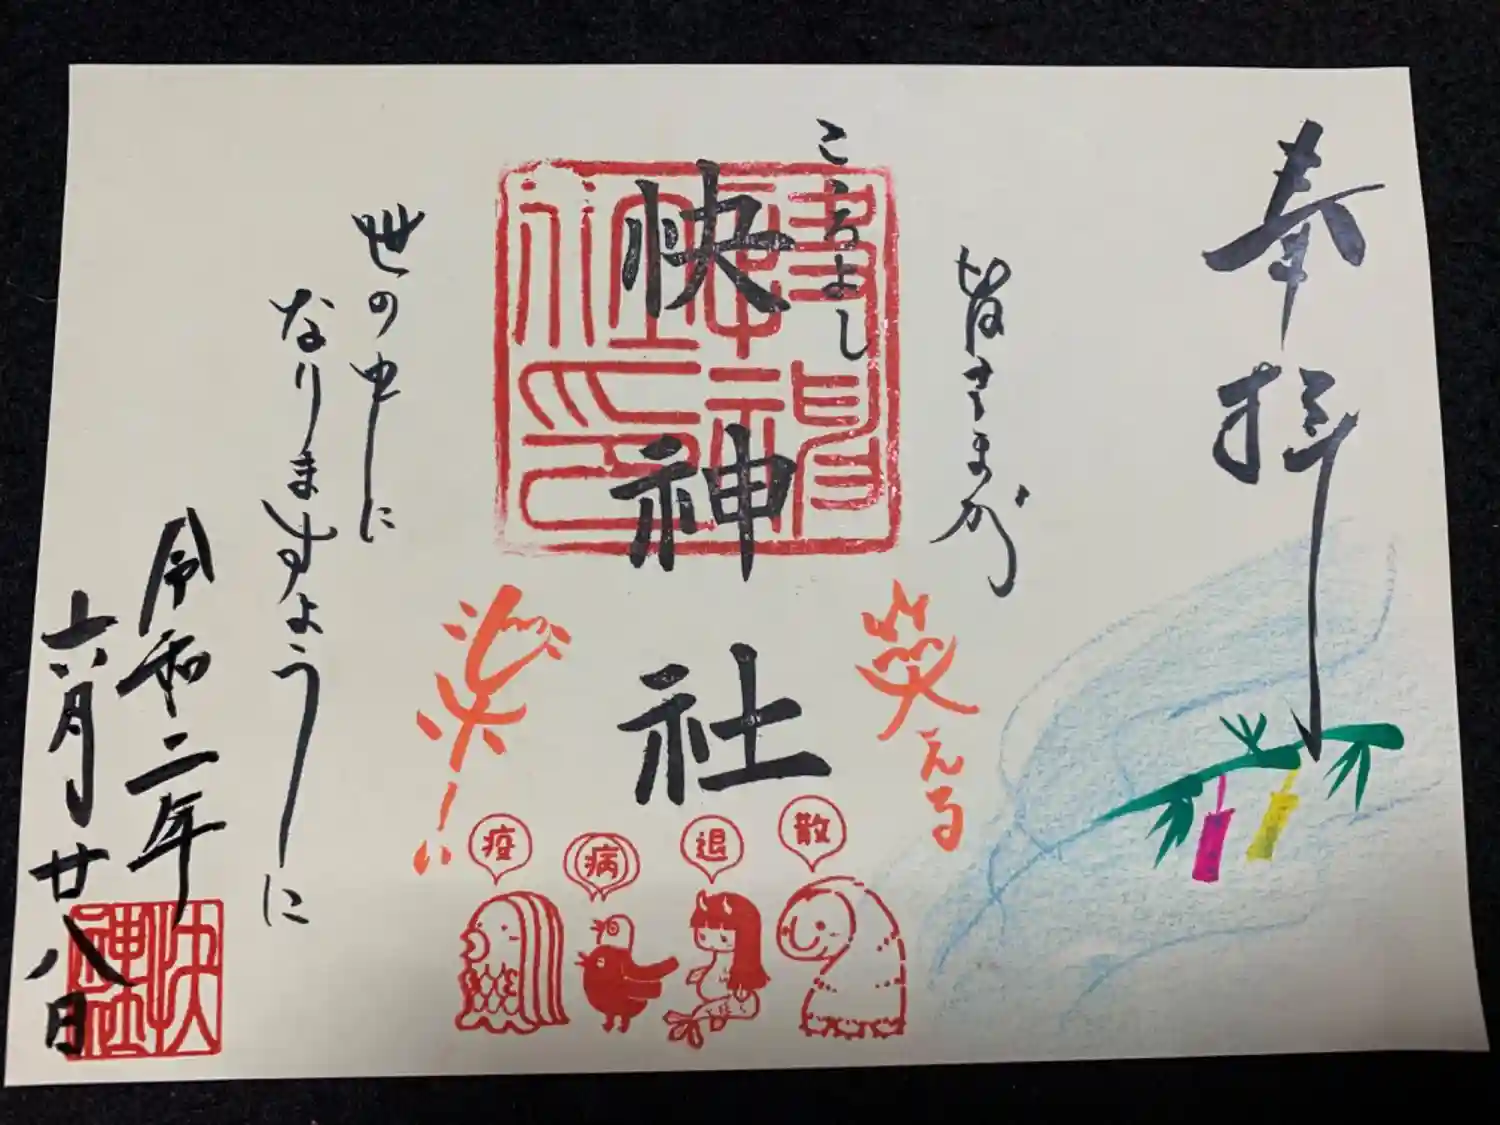 奉拝
皆さまが
笑える
こころよし
快神社
楽しい
世の中に
なりますように
令和二年
六月廿八日
疫
病
退
散
快
神社